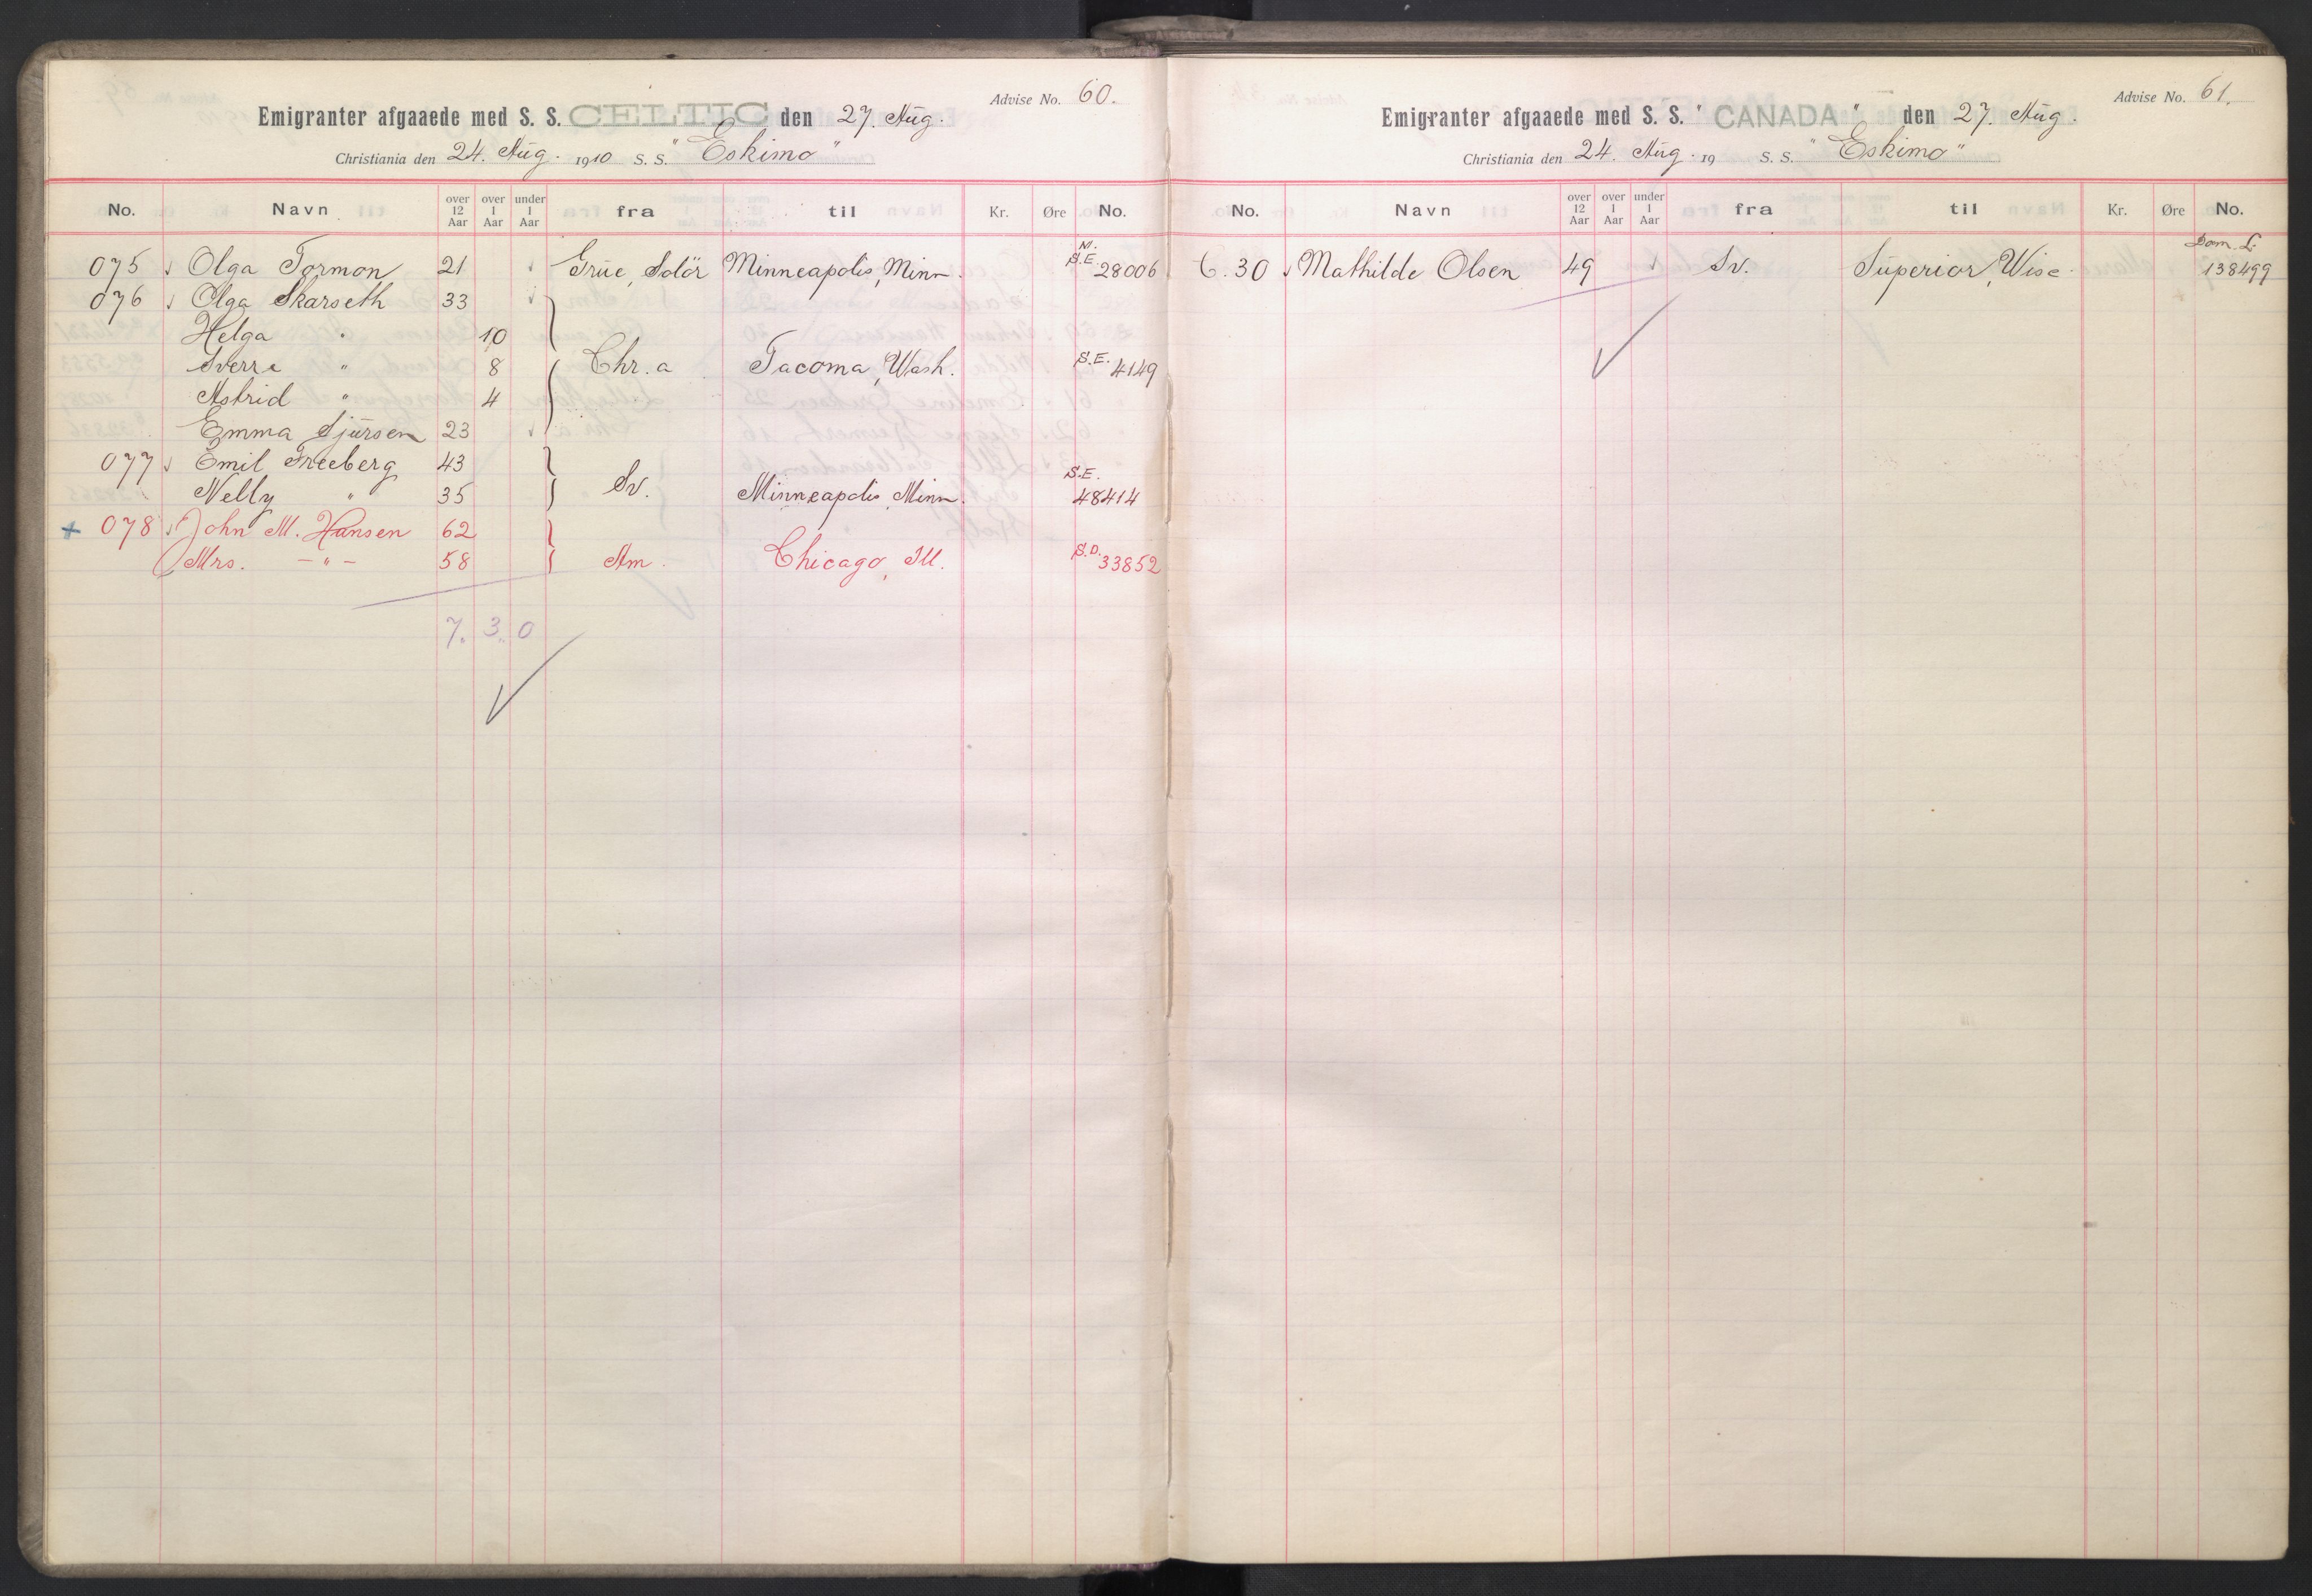 Advise No. 60.
Emigranter afgaaede med S. S. CELTIC den 27. Aug.
Christiania den 24. Aug. 1910 S. S. "Eskimo"
No. Navn over 12 Aar over 1 Aar under 1 Aar fra til Kr. Øre No.
075 Olga Tormon 21 Grue, Solör Minneapolis, Minn. N. S.E. 28006
076 Olga Skarseth 33
Helga " 10
Sverre " 8 Chr.a Tacoma, Wash. S.E. 4149
Astrid " 4
Emma Sjursen 23
077 Emil Freeberg 43
Nelly " 35 Sv. Minneapolis, Minn. S.E. 48414
+ 078 John M. Hansen 62
Mrs. -"- 58 Am. Chicago, Ill. S.D. 33852
7. 3. 0
Advise No. 61.
Emigranter afgaaede med S. S. "CANADA" den 27. Aug.
Christiania den 24. Aug. 19 S. S. "Eskimo"
No. Navn over 12 Aar over 1 Aar under 1 Aar fra til Kr. Øre No.
6.30 Mathilde Olsen 49 Sv. Superior, Wisc. Dom. L. 138499